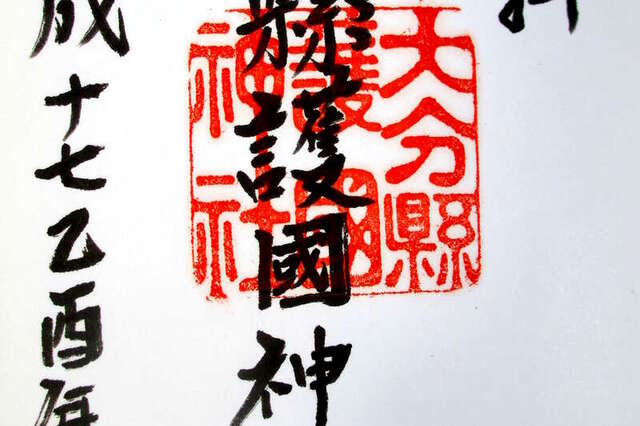 拝
縣護國神
大分縣
護國
神社
成十七乙酉年